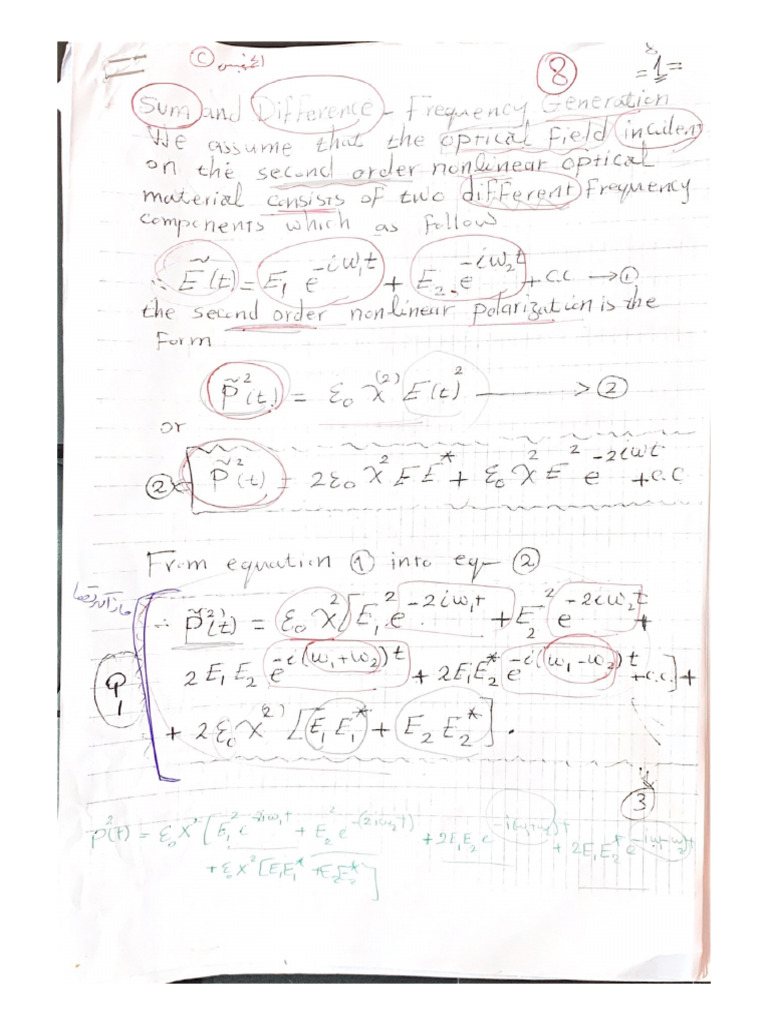 © الخميس
8
8
= 1 =
Sum and Difference - Frequency Generation
We assume that the optical field incident
on the second order nonlinear optical
material consists of two different frequency
components which as follow
∴ Ẽ(t) = E₁ e^{-iω₁t} + E₂ e^{-iω₂t} + c.c → ①
the second order nonlinear polarization is the
Form
P̃²(t) = ε₀ χ^{(2)} E(t)² → ②
or
② P̃²(t) = 2ε₀ χ² E E* + ε₀ χ² E² e^{-2iωt} + c.c
From equation ① into eq ②
∴ P̃^{(2)}(t) = ε₀ χ² [E₁² e^{-2iω₁t} + E₂² e^{-2iω₂t} +
2E₁E₂ e^{-i(ω₁+ω₂)t} + 2E₁E₂* e^{-i(ω₁-ω₂)t} + c.c.] +
Q1
+ 2ε₀ χ^{(2)} [E₁E₁* + E₂E₂*].
③
P²(t) = ε₀ χ² [E₁² e^{-2iω₁t} + E₂² e^{-(2iω₂t)} + 2E₁E₂ e^{-i(ω₁+ω₂)t} + 2E₁E₂* e^{-i(ω₁-ω₂)t}
+ ε₀ χ² [E₁E₁* + E₂E₂*]